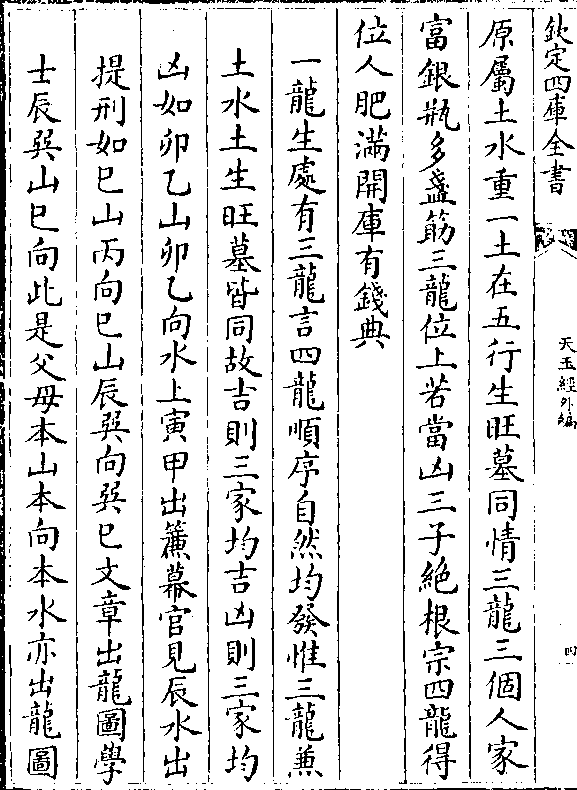 欽定四庫全書
天玉經外編
四
原屬土水重一土在五行生旺墓同情三龍三個人家
富銀瓶多盞筯三龍位上若當凶三子絶根宗四龍得
位人肥滿開庫有錢典
一龍生處有三龍言四龍順序自然均發惟三龍兼
土水土生旺墓皆同故吉則三家均吉凶則三家均
凶如卯乙山卯乙向水上寅甲出簾幕官見辰水出
提刑如巳山丙向巳山辰巽向巽巳文章出龍圖學
士辰巽山巳向此是父母本山本向本水亦出龍圖